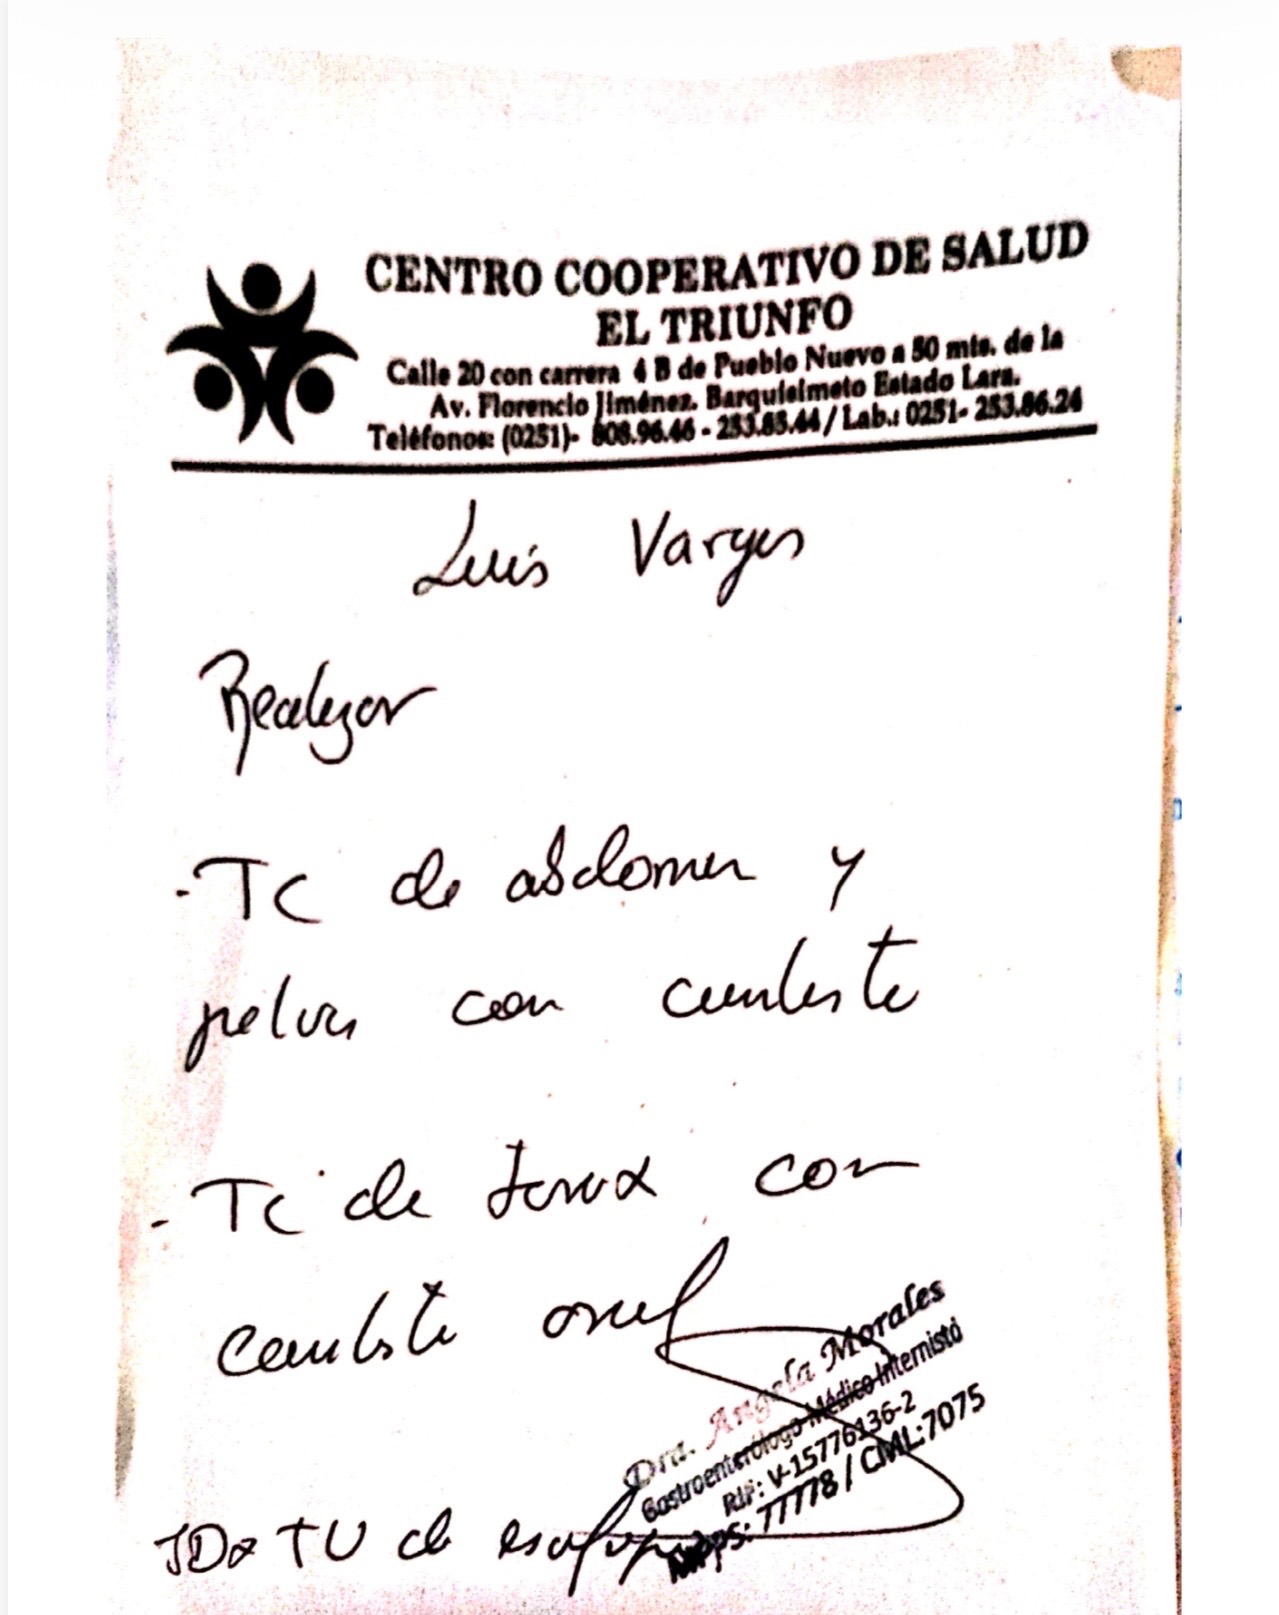 CENTRO COOPERATIVO DE SALUD
EL TRIUNFO
Calle 20 con carrera 4 B de Pueblo Nuevo a 50 mts. de la
Av. Florencio Jiménez. Barquisimeto Estado Lara.
Teléfonos: (0251)- 808.96.46 - 253.85.44 / Lab.: 0251- 253.86.24
Luis Vargas
Realizar
- TC de abdomen y
pelvis con contraste
- TC de torax con
contraste oral
Dra. Angela Morales
Gastroenterólogo Médico Internista
RIF: V-15776136-2
Mpps: 77778 / CML:7075
IDx TU de esofago